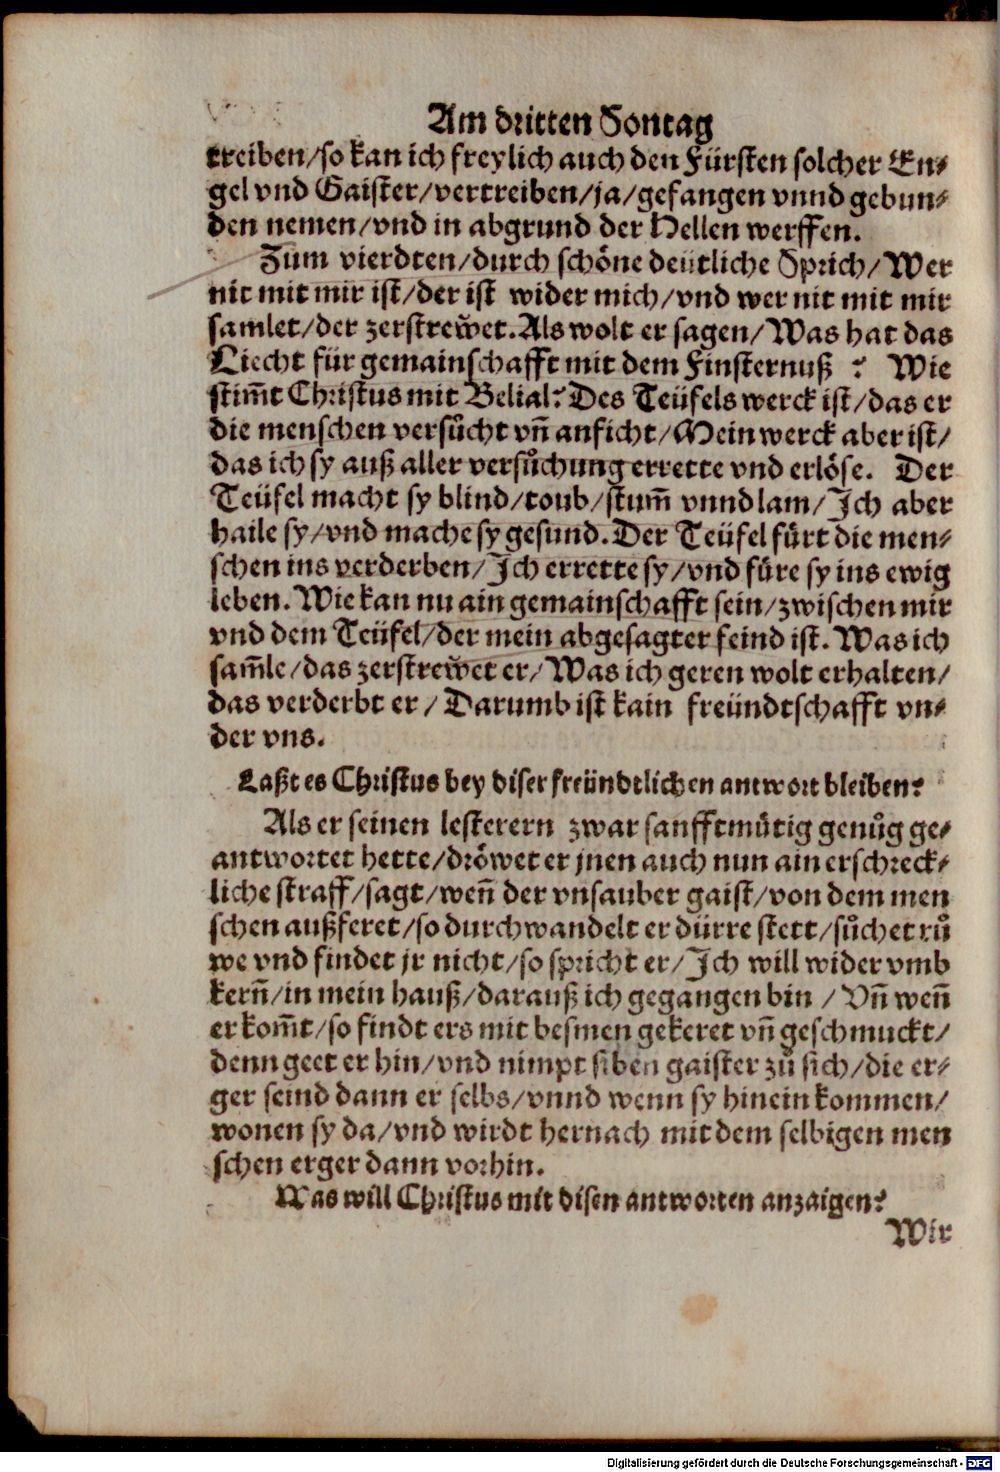 Am dritten Sontag
treiben/so kan ich freylich auch den Fürsten solcher En⸗
gel vnd Gaister/vertreiben/ja/gefangen vnnd gebun⸗
den nemen/vnd in abgrund der Hellen werffen.
Zum vierdten/durch schöne deütliche Sprich/Wer
nit mit mir ist/der ist wider mich/vnd wer nit mit mir
samlet/der zerstrew̆et. Als wolt er sagen/Was hat das
Liecht für gemainschafft mit dem Finsternuß ? Wie
stim̄t Christus mit Belial? Des Teüfels werck ist/das er
die menschen versůcht vn̄ anficht/Mein werck aber ist/
das ich sy auß aller versůchung errette vnd erlöse. Der
Teüfel macht sy blind/toub/stum̄ vnnd lam/Ich aber
haile sy/vnd mache sy gesund. Der Teüfel fürt die men⸗
schen ins verderben/Ich errette sy/vnd füre sy ins ewig
leben. Wie kan nu ain gemainschafft sein/zwischen mir
vnd dem Teüfel/der mein abgesagter feind ist. Was ich
sam̄le/das zerstrew̆et er/Was ich geren wolt erhalten/
das verderbt er/Darumb ist kain freündtschafft vn⸗
der vns.
Laßt es Christus bey diser freündtlichen antwort bleiben?
Als er seinen lesterern zwar sanfftmütig genůg ge⸗
antwortet hette/dröwet er jnen auch nun ain erschreck⸗
liche straff/sagt/wen̄ der vnsauber gaist/von dem men
schen außferet/so durchwandelt er dürre stett/sůchet rů
we vnd findet jr nicht/so spricht er/Ich will wider vmb
kern̄/in mein hauß/darauß ich gegangen bin/Vn̄ wen̄
er kom̄t/so findt ers mit besmen gekeret vn̄ geschmuckt/
denn geet er hin/vnd nimpt siben gaister zů sich/die er⸗
ger seind dann er selbs/vnnd wenn sy hinein kommen/
wonen sy da/vnd wirdt hernach mit dem selbigen men
schen erger dann vorhin.
Was will Christus mit disen antworten anzaigen?
Wir
Digitalisierung gefördert durch die Deutsche Forschungsgemeinschaft - DFG